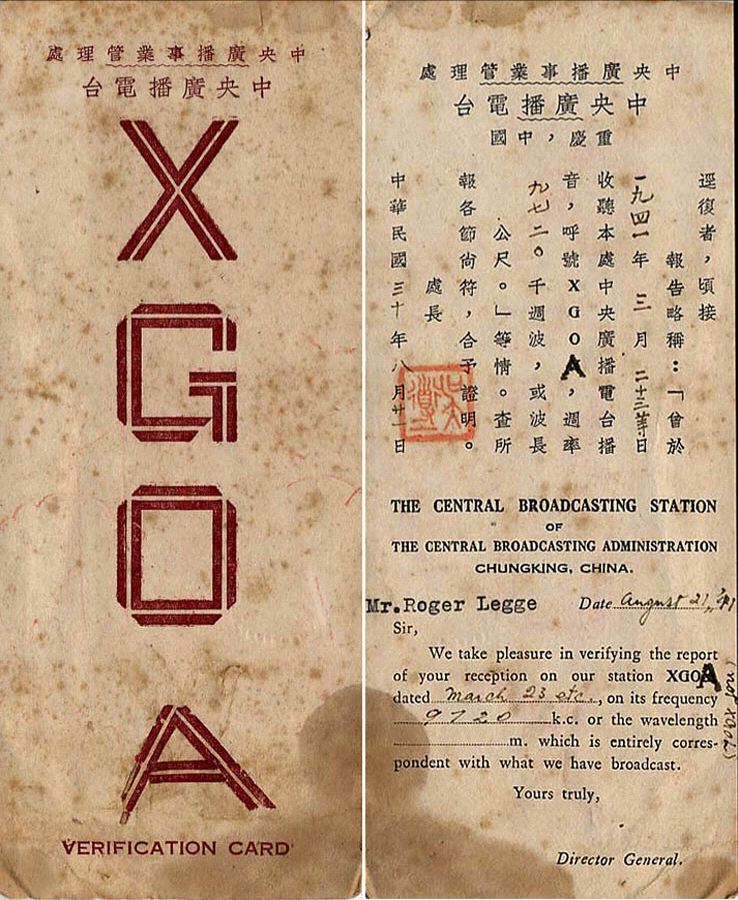 中央廣播事業管理處
中央廣播電台
X
G
O
A
VERIFICATION CARD
中央廣播事業管理處
中央廣播電台
重慶，中國
逕復者，頃接
報告略稱：「曾於
一九四一年三月二十三等日
收聽本處中央廣播電台播
音，呼號XGOA，週率
九七二〇千週波，或波長
公尺。」等情。查所
報各節尚符，合予證明。
處長
中華民國三十年八月廿一日
THE CENTRAL BROADCASTING STATION
OF
THE CENTRAL BROADCASTING ADMINISTRATION
CHUNGKING, CHINA.
Mr. Roger Legge Date August 21, '41
Sir,
We take pleasure in verifying the report
of your reception on our station XGOA
dated March 23 etc., on its frequency
9720 k.c. or the wavelength
m. which is entirely corres-
pondent with what we have broadcast.
Yours truly,
Director General.